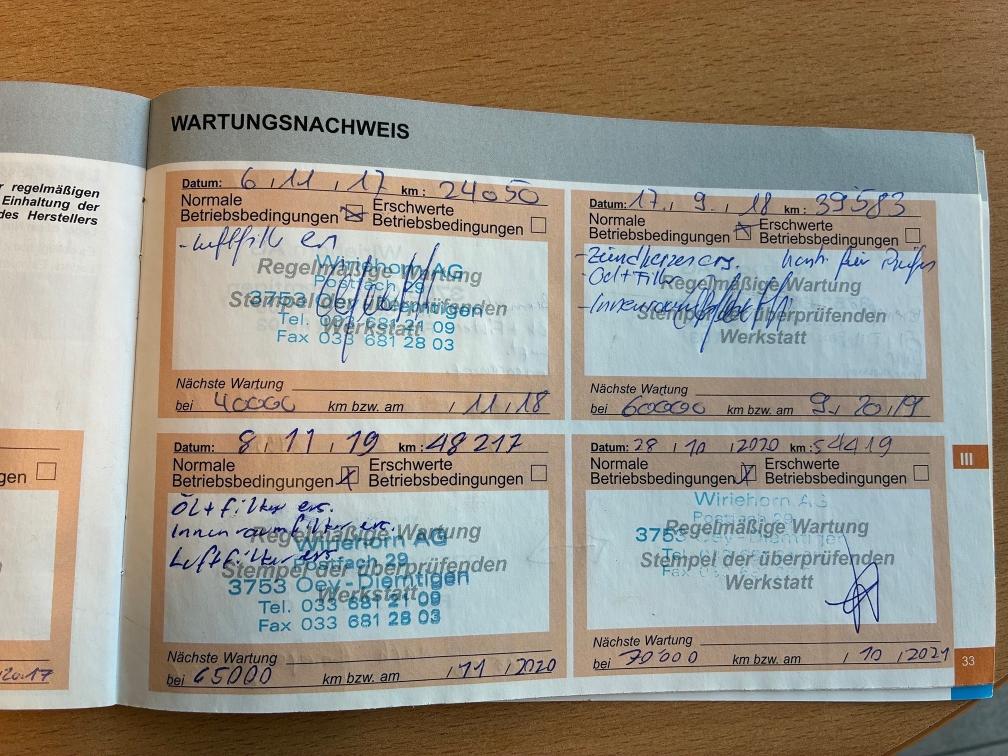 r regelmäßigen
Einhaltung der
des Herstellers
gen
2017
WARTUNGSNACHWEIS
Datum: 6 . 11 . 17 km : 24050
Normale
Betriebsbedingungen
Erschwerte
Betriebsbedingungen
- Luftfilt ers
Regelmäßige Wartung
Stempel der überprüfenden
Werkstatt
Wiriehorn AG
Postfach 29
3753 Oey-Diemtigen
Tel. 033 681 21 09
Fax 033 681 28 03
Nächste Wartung
bei 40000 km bzw. am . 11 . 18
Datum: 17 . 9 . 18 km : 39583
Normale
Betriebsbedingungen
Erschwerte
Betriebsbedingungen
- Zündkerzen ers.
- Oel + Filter
- Innenraum
Regelmäßige Wartung
Stempel der überprüfenden
Werkstatt
Nächste Wartung
bei 60000 km bzw. am 9. 20.19
Datum: 8 . 11 . 19 km : 48217
Normale
Betriebsbedingungen
Erschwerte
Betriebsbedingungen
Öl + filter ers.
Innenraumfilter ers.
Luftfilter ers
Regelmäßige Wartung
Stempel der überprüfenden
Werkstatt
Wiriehorn AG
Postfach 29
3753 Oey-Diemtigen
Tel. 033 681 21 09
Fax 033 681 28 03
Nächste Wartung
bei 65000 km bzw. am . 11 . 2020
Datum: 28 . 10 . 2020 km : 54419
Normale
Betriebsbedingungen
Erschwerte
Betriebsbedingungen
Wiriehorn AG
Postfach 29
3753 Oey-Diemtigen
Regelmäßige Wartung
Stempel der überprüfenden
Werkstatt
Nächste Wartung
bei 70'000 km bzw. am . 10 . 2021
III
33